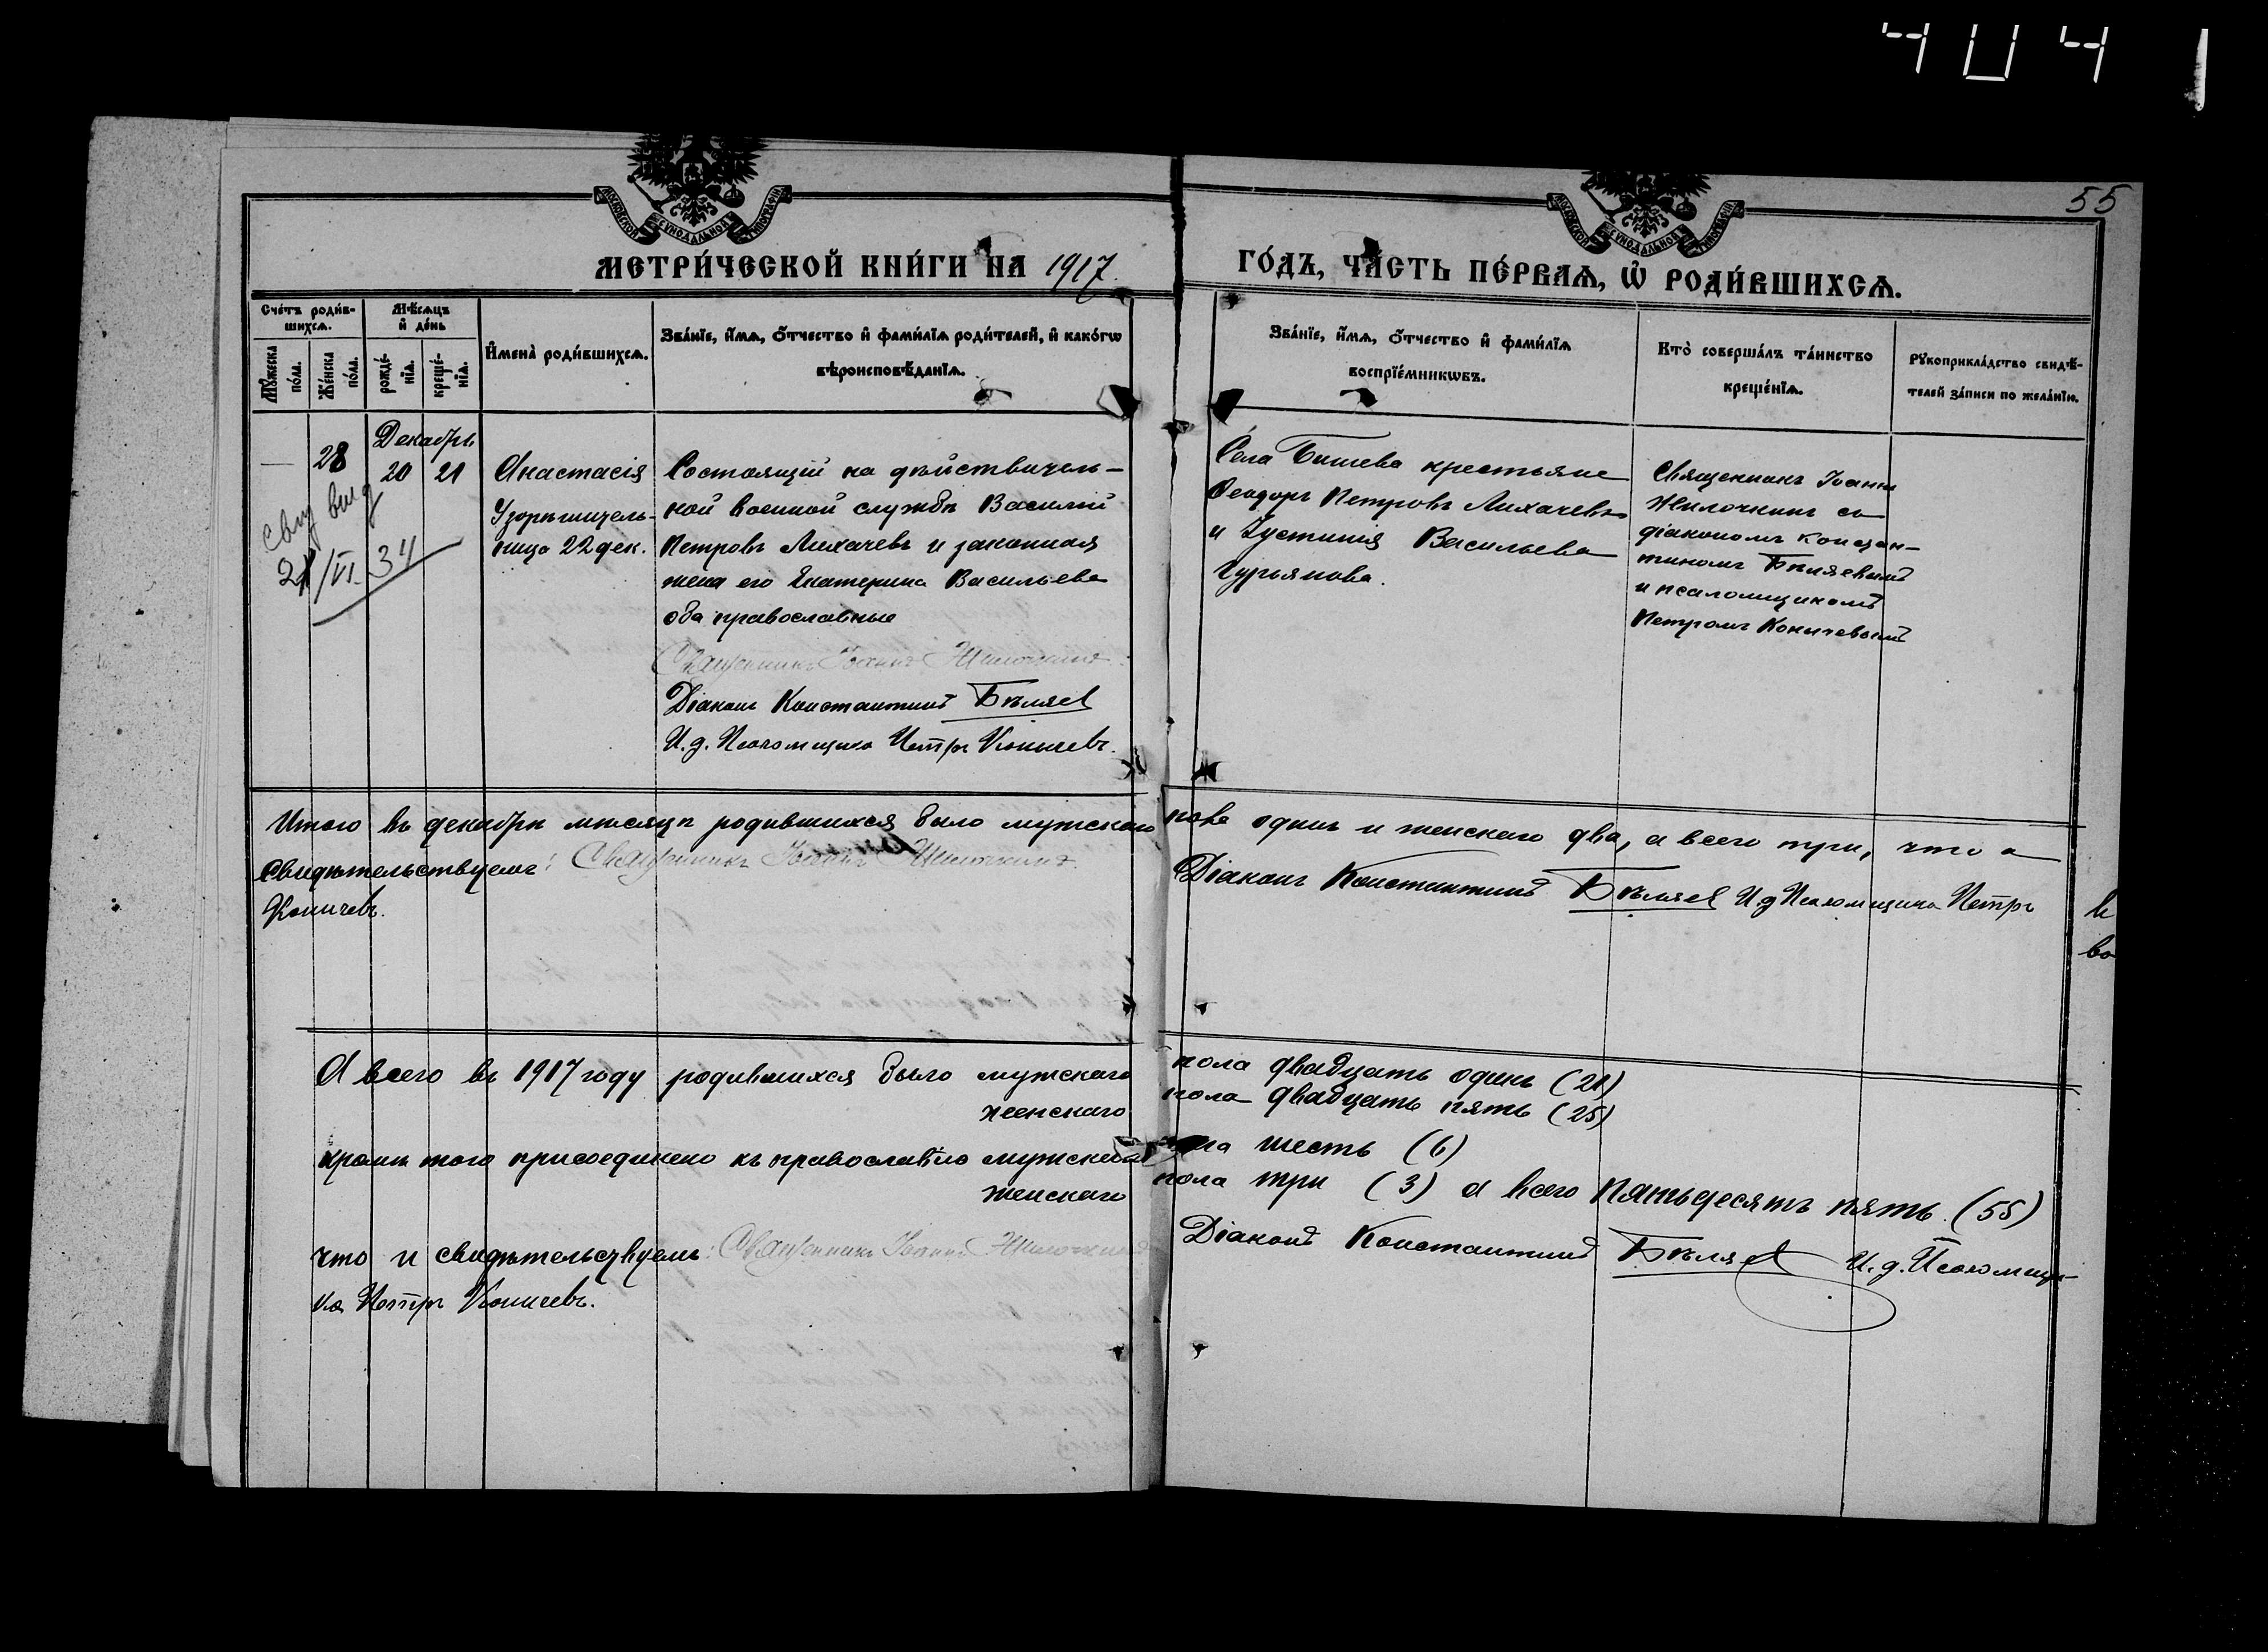 4041
55
МОСКОВСКОЙ СѴНОДАЛЬНОЙ ТИПОГРАФІИ
МОСКОВСКОЙ СѴНОДАЛЬНОЙ ТИПОГРАФІИ
МЕТРИ́ЧЕСКОЙ КНИ́ГИ НА 1917
ГО́ДЪ, ЧА́СТЬ ПЕ́РВАѦ, Ѽ РОДИ́ВШИХСѦ.
Сче́тъ роди́в-
шихсѧ.
Мѣ́сѧцъ
и҆ де́нь
Мꙋ́жеска
по́ла.
Же́нска
по́ла.
рожде́-
нїѧ.
креще́-
нїѧ.
И҆мена̀ роди́вшихсѧ.
Зва́нїе, и҆́мѧ, ѻ҆́тчество и҆ фами́лїѧ роди́телей, и҆ како́гѡ
вѣроисповѣ́данїѧ.
Зва́нїе, и҆́мѧ, ѻ҆́тчество и҆ фами́лїѧ
воспрїе́мникѡвъ.
Кто̀ соверша́лъ та́инство
креще́нїѧ.
Рꙋкоприкла́дство свидѣ́-
телей за́писи по жела́нїю.
— 28
Декабрь
20 21
свид выд
/VI 34
Анастасія
Узорѣшитель-
ница 22 дек.
Состоящій на дѣйствитель-
ной военной службѣ Василій
Петровъ Лихачевъ и законная
жена его Екатерина Васильева
оба православные
Священникъ Іоаннъ Жилочкинъ
Діаконъ Константинъ Бѣляев
И.д. Псаломщика Петръ Коничевъ.
Села Бишева крестьяне
Ѳеодоръ Петровъ Лихачевъ
и Іустинія Васильева
Гурьянова.
Священникъ Іоаннъ
Жилочкинъ съ
діакономъ Констан-
тиномъ Бѣляевымъ
и псаломщикомъ
Петромъ Коничевымъ
Итого въ декабрѣ мѣсяцѣ родившихся было мужского пола одинъ и женскаго два, а всего три, что и
свидѣтельствуемъ: Священникъ Іоаннъ Жилочкинъ Діаконъ Константинъ Бѣляев И.д Псаломщика Петръ
Коничевъ.
во
А всего въ 1917 году родившихся было мужскаго пола двадцать одинъ (21)
женскаго пола двадцать пять (25)
кромѣ того присоединено къ православію мужского пола шесть (6)
женскаго пола три (3) а всего пятьдесятъ пять (55)
что и свидѣтельствуемъ: Священникъ Іоаннъ Жилочкинъ Діаконъ Константинъ Бѣляев И.д. Псаломщи-
ка Петръ Коничевъ.